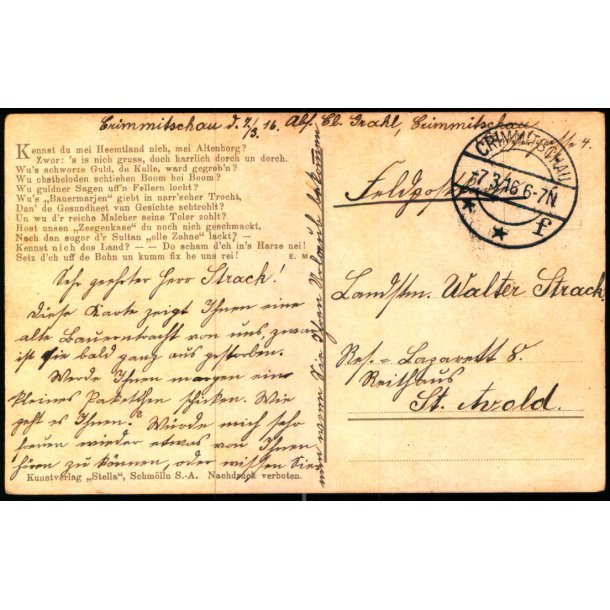 Crimmitschau d. 7./3. 16. Abs. El. Grahl, Crimmitschau
Kennst du mei Heemtland nich, mei Altenborg?
Zwor: 's is nich gruss, doch harrlich dorch un dorch.
Wu's schworze Guld, de Kulle, ward gegrob'n?
Wu obstbeloden schtiehen Boom bei Boom?
Wu guldner Sagen uff'n Fellern locht?
Wu's „Bauermarjen“ giebt in narr'scher Trocht,
Dan' de Gesundheet vun Gesichte schtrohlt?
Un wu d'r reiche Malcher seine Toler zohlt?
Host unsen „Zeegenkase“ du noch nich geschmackt,
Nach dan sugor d'r Sultan „olle Zahne“ lackt? –
Kennst nich dos Land? – — Do scham d'ch in's Harze nei!
Setz d'ch uff de Bohn un kumm fix be uns rei! E. M.
Sehr geehrter Herr Strack!
Diese Karte zeigt Ihnen eine
alte Bauerntracht von uns, zwar
ist sie bald ganz aus gestorben.
Werde Ihnen morgen ein
kleines Paketchen schicken. Wie
geht es Ihnen? Würde mich sehr
freuen wieder etwas von Ihnen
hören zu können, oder wissen Sie
nun wenn Sie Ihren Urlaub bekommen
Kunstverlag „Stella“, Schmölln S.-A. Nachdruck verboten.
CRIMMITSCHAU
-7.3.16 6-7N.
* * f
Feldpost
Landstm. Walter Strack
Res.-Lazarett 8.
Reithaus
St. Avold.